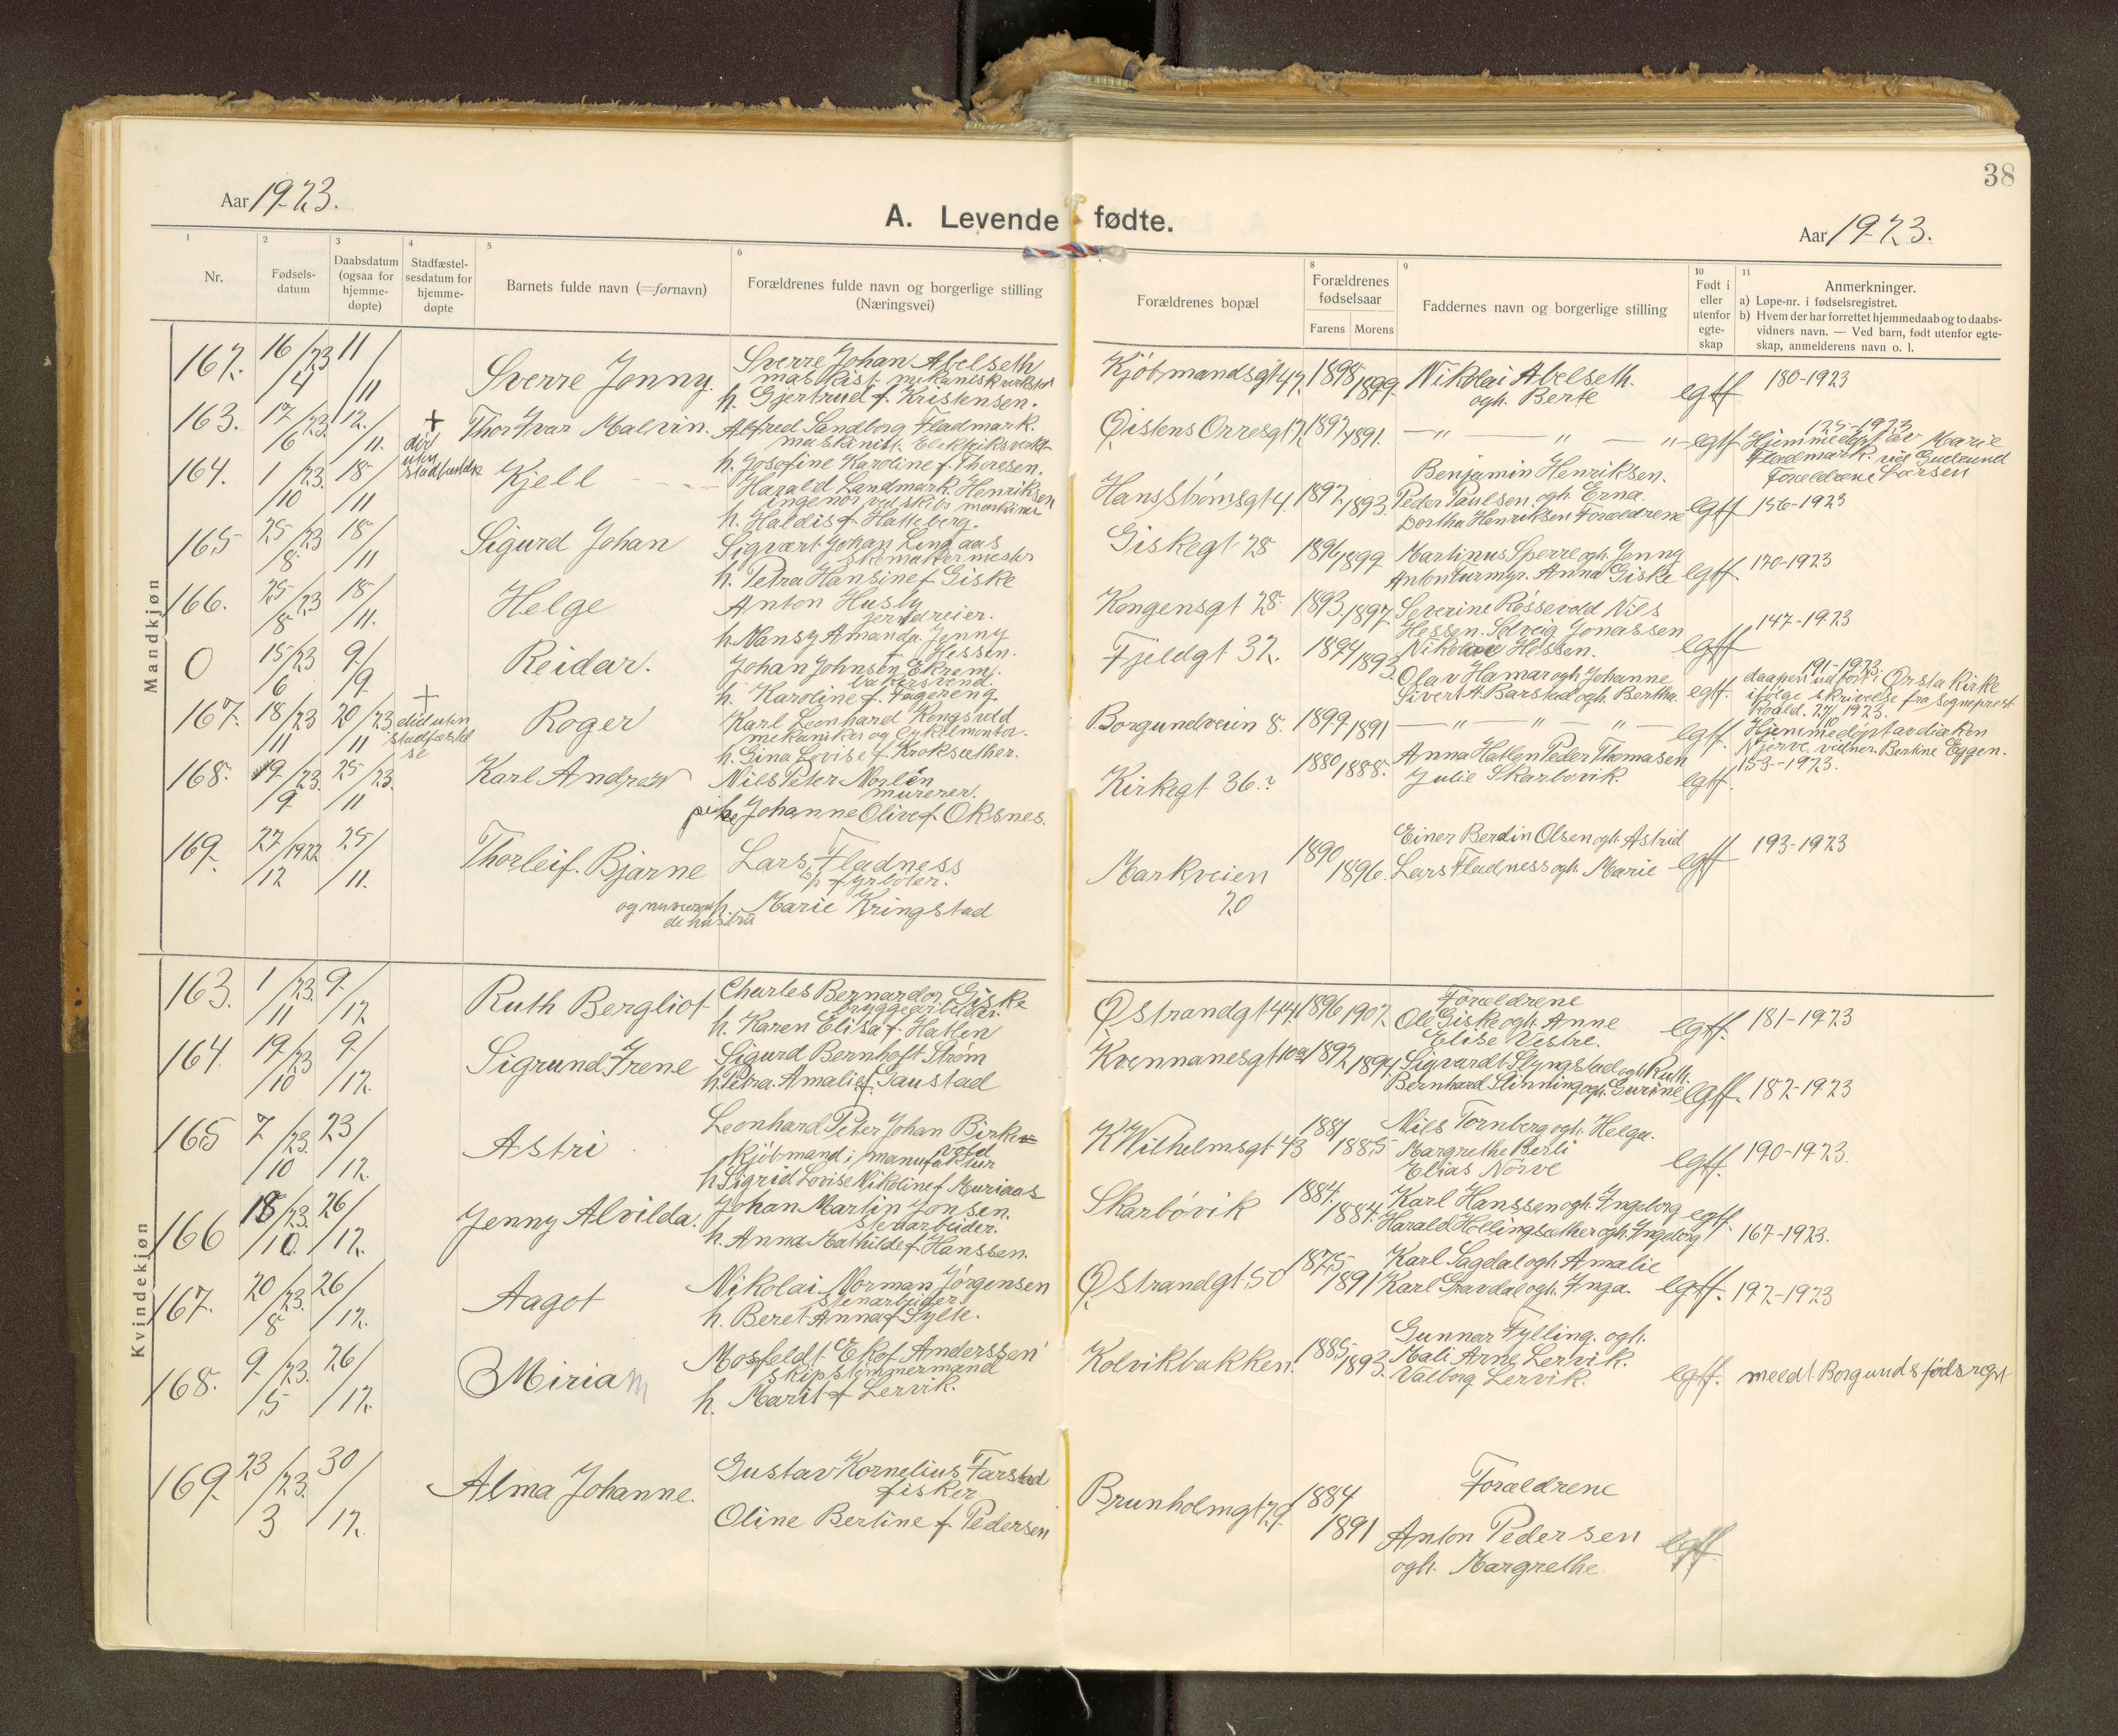 38
Aar 1923.
A. Levende fødte.
Aar 1923.
1
Nr.
2
Fødsels-
datum
3
Daabsdatum
(ogsaa for
hjemme-
døpte)
4
Stadfæstel-
sesdatum for
hjemme-
døpte
5
Barnets fulde navn (=fornavn)
6
Forældrenes fulde navn og borgerlige stilling
(Næringsvei)
Forældrenes bopæl
8
Forældrenes
fødselsaar
Farens Morens
9
Faddernes navn og borgerlige stilling
10
Født i
eller
utenfor
egte-
skap
11
Anmerkninger.
a) Løpe-nr. i fødselsregistret.
b) Hvem der har forrettet hjemmedaab og to daabs-
vidners navn. — Ved barn, født utenfor egte-
skap, anmelderens navn o. l.
Mandkjøn
162. 16/4 23 11/11 Sverre Jonny.
Sverre Johan Abelseth
maskist. mekanisk verksted
h. Gjertrud f. Kristensen.
Kjøbmandsgt 42. 1898 1899.
Nikolai Abelseth.
ogh. Berte
egtf 180-1923
163. 17/6 23. 12./11. +
død
uten
stadfæstelse
Thor Ivar Malvin.
Alfred Sandborg Fladmark.
maskinist. Elektriksverket
h. Josefine Karoline f. Thoresen.
Øistens Orresgt 17. 1892 1891.
— " — " — " — egtf
125-1923
Hjemmedøpt av Marie
Fladmark. vid Gudrund
Forældrene Larsen
164. 1/10 23. 18/11 Kjell
Harald Landmark Henriksen
ingeniør ved skibs maskiner
h. Haldis f. Hatleberg.
Hans Strømsgt 4. 1892 1893.
Benjamin Henriksen.
Peder Paulsen. ogh. Erna.
Dorthea Henriksen Forældrene
egtf 156-1923
165 25/8 23 18/11 Sigurd Johan
Sigvart Johan Lingaas
skomakermester
h. Petra Hansine f. Giske
Giskegt 28 1896 1899
Martinus Sperre ogh. Jenny
Anton Furmyr. Anna Giske
egtf. 170-1923
166. 25/8 23 18/11. Helge
Anton Husby
jerndreier.
h. Nansy Amanda Jenny
f. Hessen.
Kongensgt 28. 1893. 1897.
Severine Røssevold Nils
Hessen. Solveig Jonassen
Nikolai Hessen.
egtf 147-1923
0 15/6 23 9/9 Reidar.
Johan Johnsen Ekrem.
bakersvend.
h. Karoline f. Fagereng
Fjeldgt 32. 1894 1893.
Olav Hamar ogh. Johanne
Sivert A. Barstad ogh. Bertha.
egtf.
191-1923.
daapen udført i Ørsta Kirke
ifølge skrivelse fra sogneprest
Roald. 27/10 1923.
167. 18/11 23 20/11 23 +
død uten
stadfæstel
se
Roger
Karl Leonhard Kongsvold
mekaniker og cykelmontør.
h. Gina Lovise f. Kroksæther.
Borgundveien 8. 1899 1891
— " — " — " —
egtf.
Hjemmedøpt av diaken
Njerve. vidner. Bertine Eggen.
168. 19/9 23. 25/11 23. Karl Andreas
Nils Peter Norlén
murerer.
pike Johanne Olive f. Oksnes.
Kirkegt 36.? 1880 1888.
Anna Hatlen Peder Thomasen
Julie Skarbøvik.
egtf. 153-1923.
169. 27/12 1922 25/11. Thorleif. Bjarne
Lars Fladness
fyrbøter.
h. Marie Kringstad
Markveien
20
1890 1896.
Einer Berdin Olsen ogh. Astrid
Lars Fladness ogh. Marie
egtf 193-1923
Kvindekjøn
163. 1/11 23. 9/12 Ruth Bergliot
Charles Bernardor Giske
bryggearbeider.
h. Karen Elisa f. Hatlen
Østrandgt 44. 1896 1902.
Forældrene
Ole Giske ogh. Anne
Elise Vestre.
egtf. 181-1923
164. 19/10 23 9/12. Sigrund Irene
Sigurd Bernhoft Strøm
h. Petra Amalie f. Gaustad
Kvennanesgt 10a 1892 1894
Sigvardt Slyngstad ogh. Ruth.
Bernhard Slinning ogh. Gurine
egtf. 182-1923
165 7/10 23. 23/12. Astri
Leonhard Peter Johan Birke
vold
kjøbmand i manufaktur
h. Sigrid Lovise Nikoline f. Muriaas
K Wilhelmsgt 43 1881 1885
Nils Tornberg ogh. Helga.
Margrethe Berli
Elias Nörve
egtf. 190-1923.
166 18/10. 23. 26/12. Jenny Alvilda.
Johan Martin Jonsen.
stenarbeider.
h. Anna Mathilde f. Hanssen.
Skarbøvik 1884. 1884.
Karl Hanssen ogh. Ingeborg
Harald Hollingsæther ogh. Ingeborg
egtf. 167-1923.
167. 20/8 23. 26/12. Aagot
Nikolai Norman Jørgensen
stenarbeider.
h. Beret Anna f. Sylte.
Østrandgt 50 1875 1891
Karl Sagdal ogh. Amalie
Karl Gravdal ogh. Inga.
egtf. 192-1923
168. 9/5 23. 26/12. Miriam
Mosfeldt Ekof Anderssen
skipstømmermand
h. Marit f. Lervik.
Kolvikbakken. 1885 1893.
Gunnar Fylling. ogh.
Mali Arne Lervik.
Valborg Lervik.
egtf. meldt Borgunds føds regst
169. 23/3 23. 30/12. Alma Johanne.
Gustav Kornelius Farstad
fisker
Oline Bertine f. Pedersen
Brunholmgt 29. 1884 1891
Forældrene
Anton Pedersen
ogh. Margrethe
egtf.